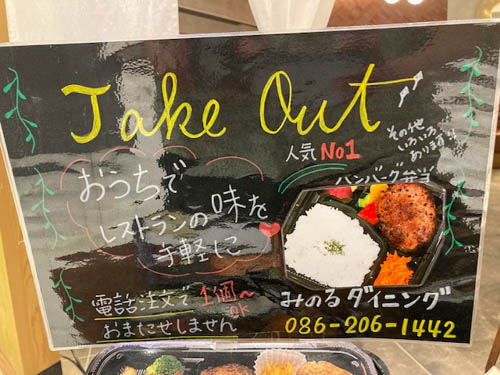 Take Out
その他
いろいろ
あります!!
人気 No1
ハンバーグ弁当
おうちで
レストランの味を
手軽に
電話注文で1個~OK
おまたせしません
みのるダイニング
086-206-1442